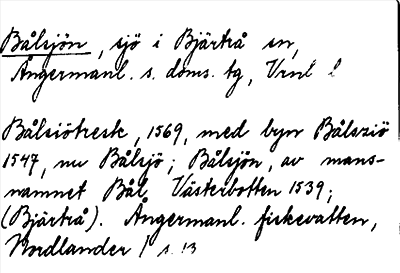 Bålsjön, sjö i Bjärtrå sn,
Ångermanl. s. doms. tg, Vrnl l
Bålsiötresk, 1569, med byn Bålsziö
1547, nu Bålsjö; Bålsjön, av mans-
namnet Bål, Västerbotten 1539;
(Bjärtrå). Ångermanl. fiskevatten,
Nordlander 1 s. 13